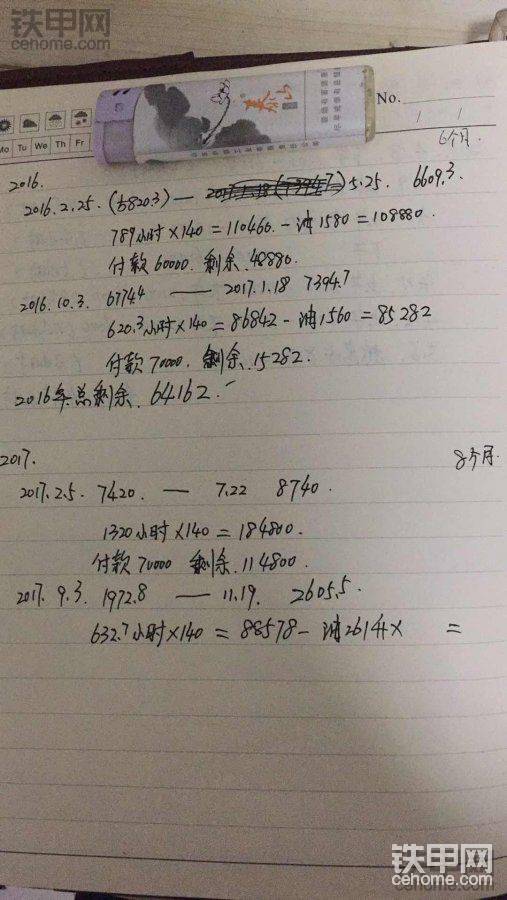 铁甲网
cehome.com
No.
Mo Tu We Th Fr
6个月.
2016.
2016.2.25. (5820.3) — 5.25. 6609.3.
789小时×140=110460.-油1580=108880.
付款60000. 剩余.48880.
2016.10.3. 6774.4 — 2017.1.18 7394.7
620.3小时×140=86842-油1560=85282
付款70000. 剩余.15282.
2016年总剩余.64162.
2017. 8个月.
2017.2.5. 7420. — 7.22 8740.
1320小时×140=184800.
付款70000 剩余.114800.
2017.9.3. 1972.8 — 11.19. 2605.5.
632.7小时×140=88578-油2614× =
铁甲网
cehome.com